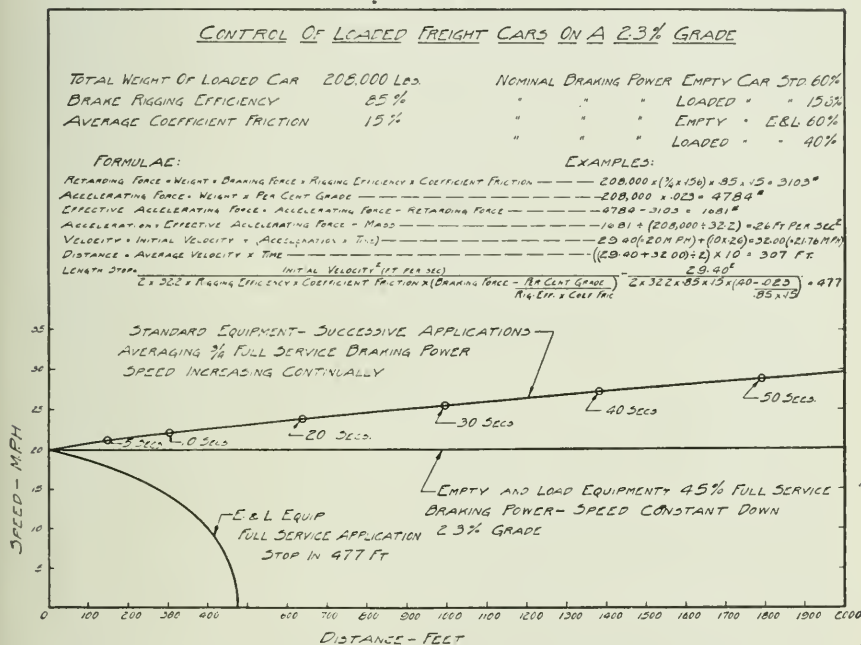 CONTROL OF LOADED FREIGHT CARS ON A 2.3% GRADE
TOTAL WEIGHT OF LOADED CAR 208,000 LBS.
BRAKE RIGGING EFFICIENCY 85%
AVERAGE COEFFICIENT FRICTION 15%
NOMINAL BRAKING POWER EMPTY CAR STD. 60%
" " " LOADED " "
" " " EMPTY " E&L 60%
" " " LOADED " " 40%
FORMULAE:
EXAMPLES:
RETARDING FORCE = WEIGHT × BRAKING FORCE × RIGGING EFFICIENCY × COEFFICIENT FRICTION — 208,000 × × .85 × .15 = 3103#
ACCELERATING FORCE = WEIGHT × PER CENT GRADE — 208,000 × .023 = 4784#
EFFECTIVE ACCELERATING FORCE = ACCELERATING FORCE - RETARDING FORCE — 4784 - 3103 = 1681#
ACCELERATION = EFFECTIVE ACCELERATING FORCE ÷ MASS — 1681 ÷ (208,000 ÷ 32.2) = .26 FT PER SEC²
VELOCITY = INITIAL VELOCITY + (ACCELERATION × TIME) — 29.40 (=20 M.P.H) + (10×.26) = 32.00 (=21.76 M.P.H)
DISTANCE = AVERAGE VELOCITY × TIME — ((29.40 + 32.00) ÷ 2) × 10 = 307 FT.
LENGTH STOP = INITIAL VELOCITY² (FT PER SEC)
2 × 32.2 × RIGGING EFFICIENCY × COEFFICIENT FRICTION × (BRAKING FORCE - PER CENT GRADE
RIG. EFF. × COEF FRIC)
= 29.40²
2 × 32.2 × .85 × .15 × (.40 - .023
.85 × .15) = 477
STANDARD EQUIPMENT - SUCCESSIVE APPLICATIONS
AVERAGING 3/4 FULL SERVICE BRAKING POWER
SPEED INCREASING CONTINUALLY
35
30
25
20
15
10
5
SPEED - M.P.H
5 SECS.
10 SECS.
20 SECS.
30 SECS.
40 SECS.
50 SECS.
EMPTY AND LOAD EQUIPMENT - 45% FULL SERVICE
BRAKING POWER - SPEED CONSTANT DOWN
2.3% GRADE
E & L EQUIP
FULL SERVICE APPLICATION
STOP IN 477 FT
0 100 200 300 400 600 700 800 900 1000 1100 1200 1300 1400 1500 1600 1700 1800 1900 2000
DISTANCE - FEET